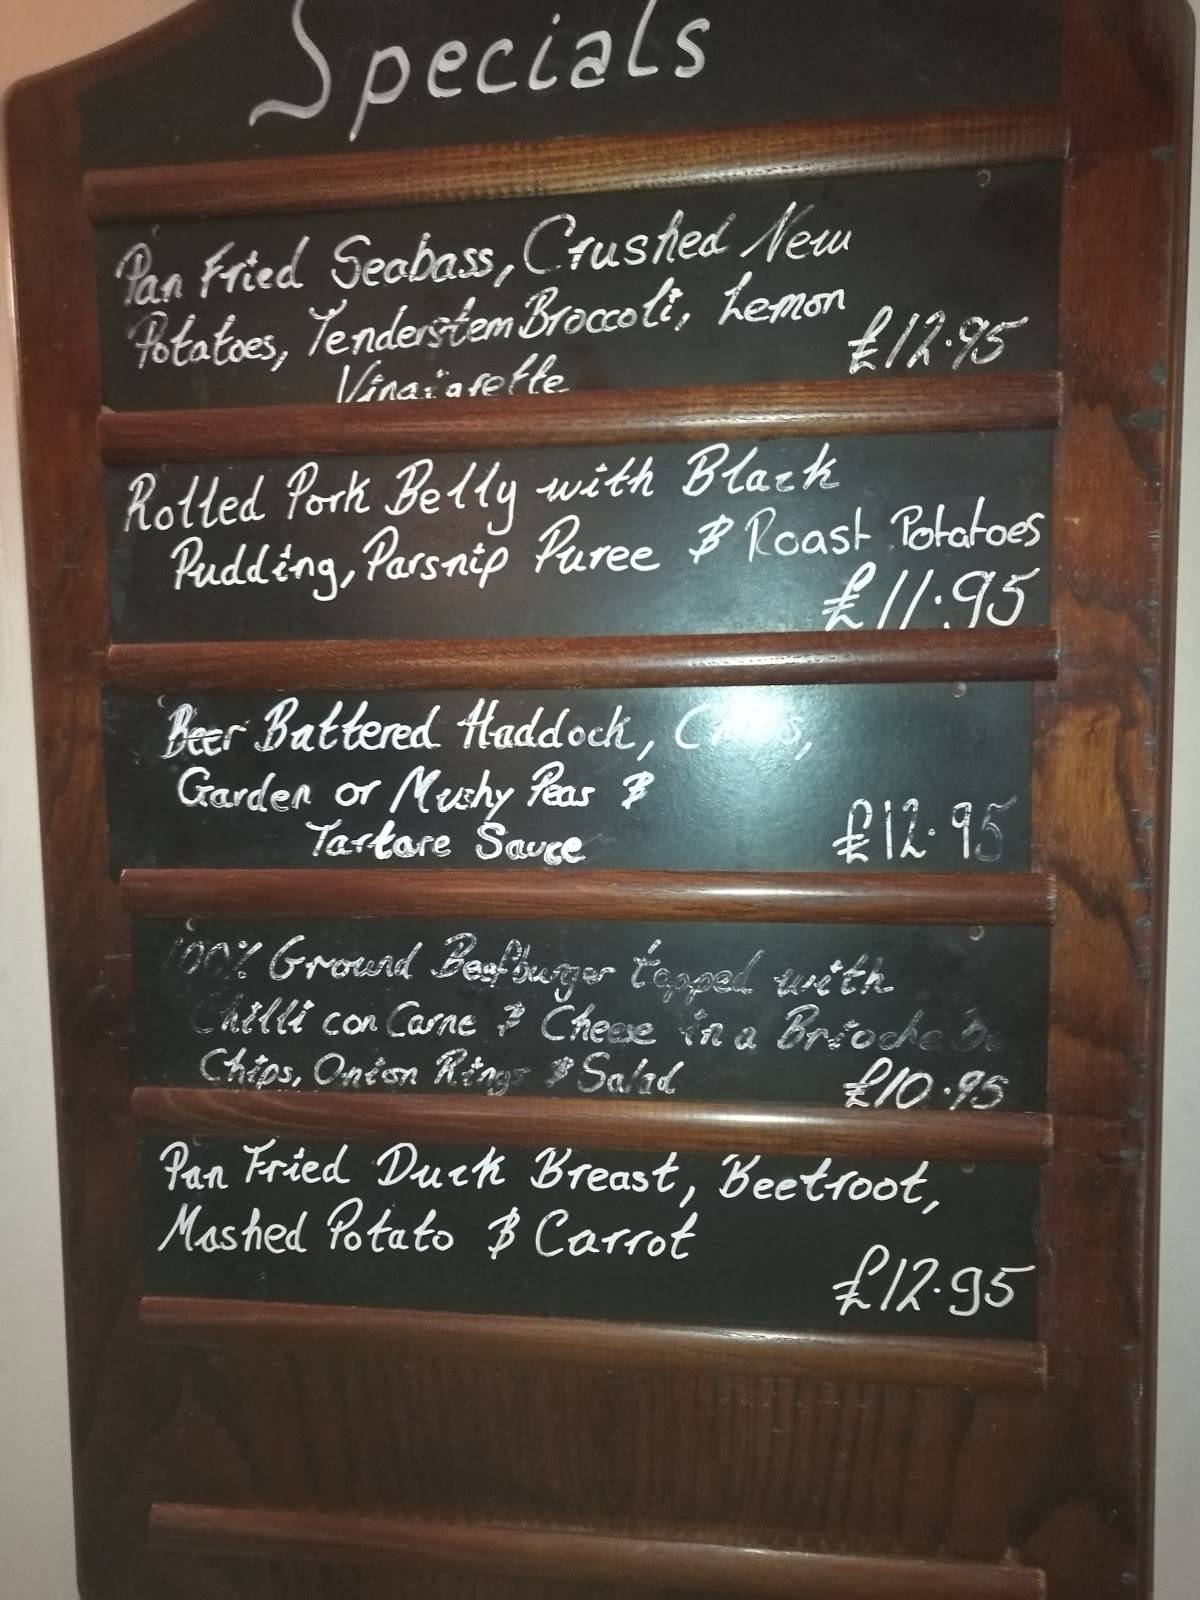 Specials
Pan Fried Seabass, Crushed New
Potatoes, Tenderstem Broccoli, Lemon
Vinaigrette
£12.95
Rolled Pork Belly with Black
Pudding, Parsnip Puree & Roast Potatoes
£11.95
Beer Battered Haddock, Chips,
Garden or Mushy Peas &
Tartare Sauce
£12.95
100% Ground Beefburger topped with
Chilli con Carne & Cheese in a Brioche
Chips, Onion Rings & Salad
£10.95
Pan Fried Duck Breast, Beetroot,
Mashed Potato & Carrot
£12.95